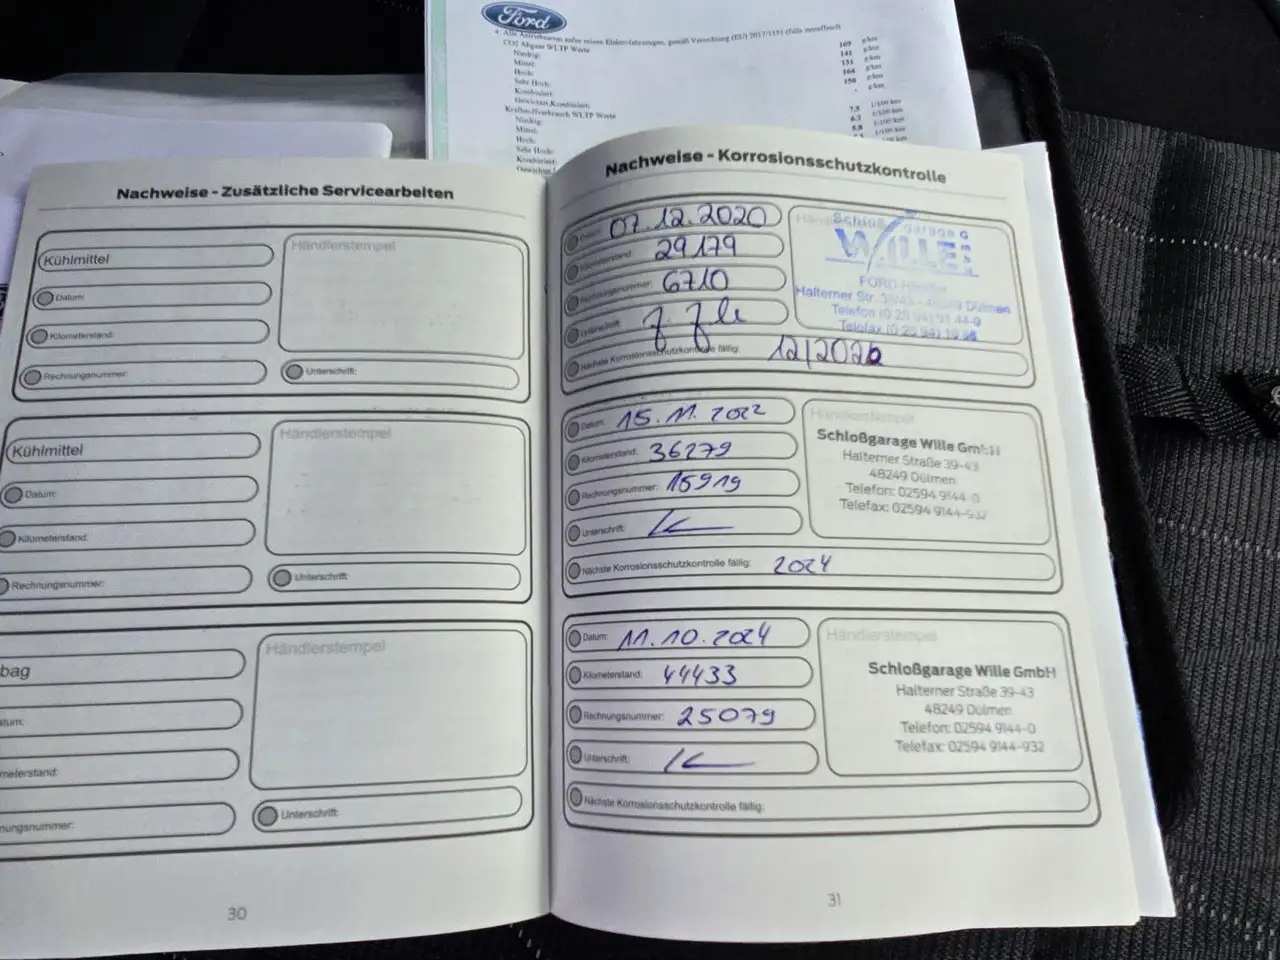 Ford
4. Alle Antriebsarten außer reinen Elektrofahrzeugen, gemäß Verordnung (EU) 2017/1151 (falls zutreffend)
CO2 Abgas WLTP Werte
Niedrig: 169 g/km
Mittel: 141 g/km
Hoch: 131 g/km
Sehr Hoch: 164 g/km
Kombiniert: 150 g/km
Gewichtet, Kombiniert: - g/km
Kraftstoffverbrauch WLTP Werte
Niedrig: 7,5 l/100 km
Mittel: 6,2 l/100 km
Hoch: 5,8 l/100 km
Sehr Hoch: l/100 km
Kombiniert:
Nachweise - Zusätzliche Servicearbeiten
Kühlmittel
Händlerstempel
Datum:
Kilometerstand:
Rechnungsnummer:
Unterschrift:
Kühlmittel
Händlerstempel
Datum:
Kilometerstand:
Rechnungsnummer:
Unterschrift:
bag
Händlerstempel
atum:
meterstand:
nungsnummer:
Unterschrift:
30
Nachweise - Korrosionsschutzkontrolle
Datum: 07.12.2020
Kilometerstand: 29179
Rechnungsnummer: 6710
Unterschrift:
Nächste Korrosionsschutzkontrolle fällig: 12/2022
Schloßgarage GmbH
WILLE
FORD-Händler
Halterner Str. 39/43 - 48249 Dülmen
Telefon (0 25 94) 91 44-0
Telefax (0 25 94)
Datum: 15.11.2022
Kilometerstand: 36279
Rechnungsnummer: 15919
Unterschrift:
Nächste Korrosionsschutzkontrolle fällig: 2024
Händlerstempel
Schloßgarage Wille GmbH
Halterner Straße 39-43
48249 Dülmen
Telefon: 02594 9144-0
Telefax: 02594 9144-932
Datum: 11.10.2024
Kilometerstand: 44433
Rechnungsnummer: 25079
Unterschrift:
Nächste Korrosionsschutzkontrolle fällig:
Händlerstempel
Schloßgarage Wille GmbH
Halterner Straße 39-43
48249 Dülmen
Telefon: 02594 9144-0
Telefax: 02594 9144-932
31